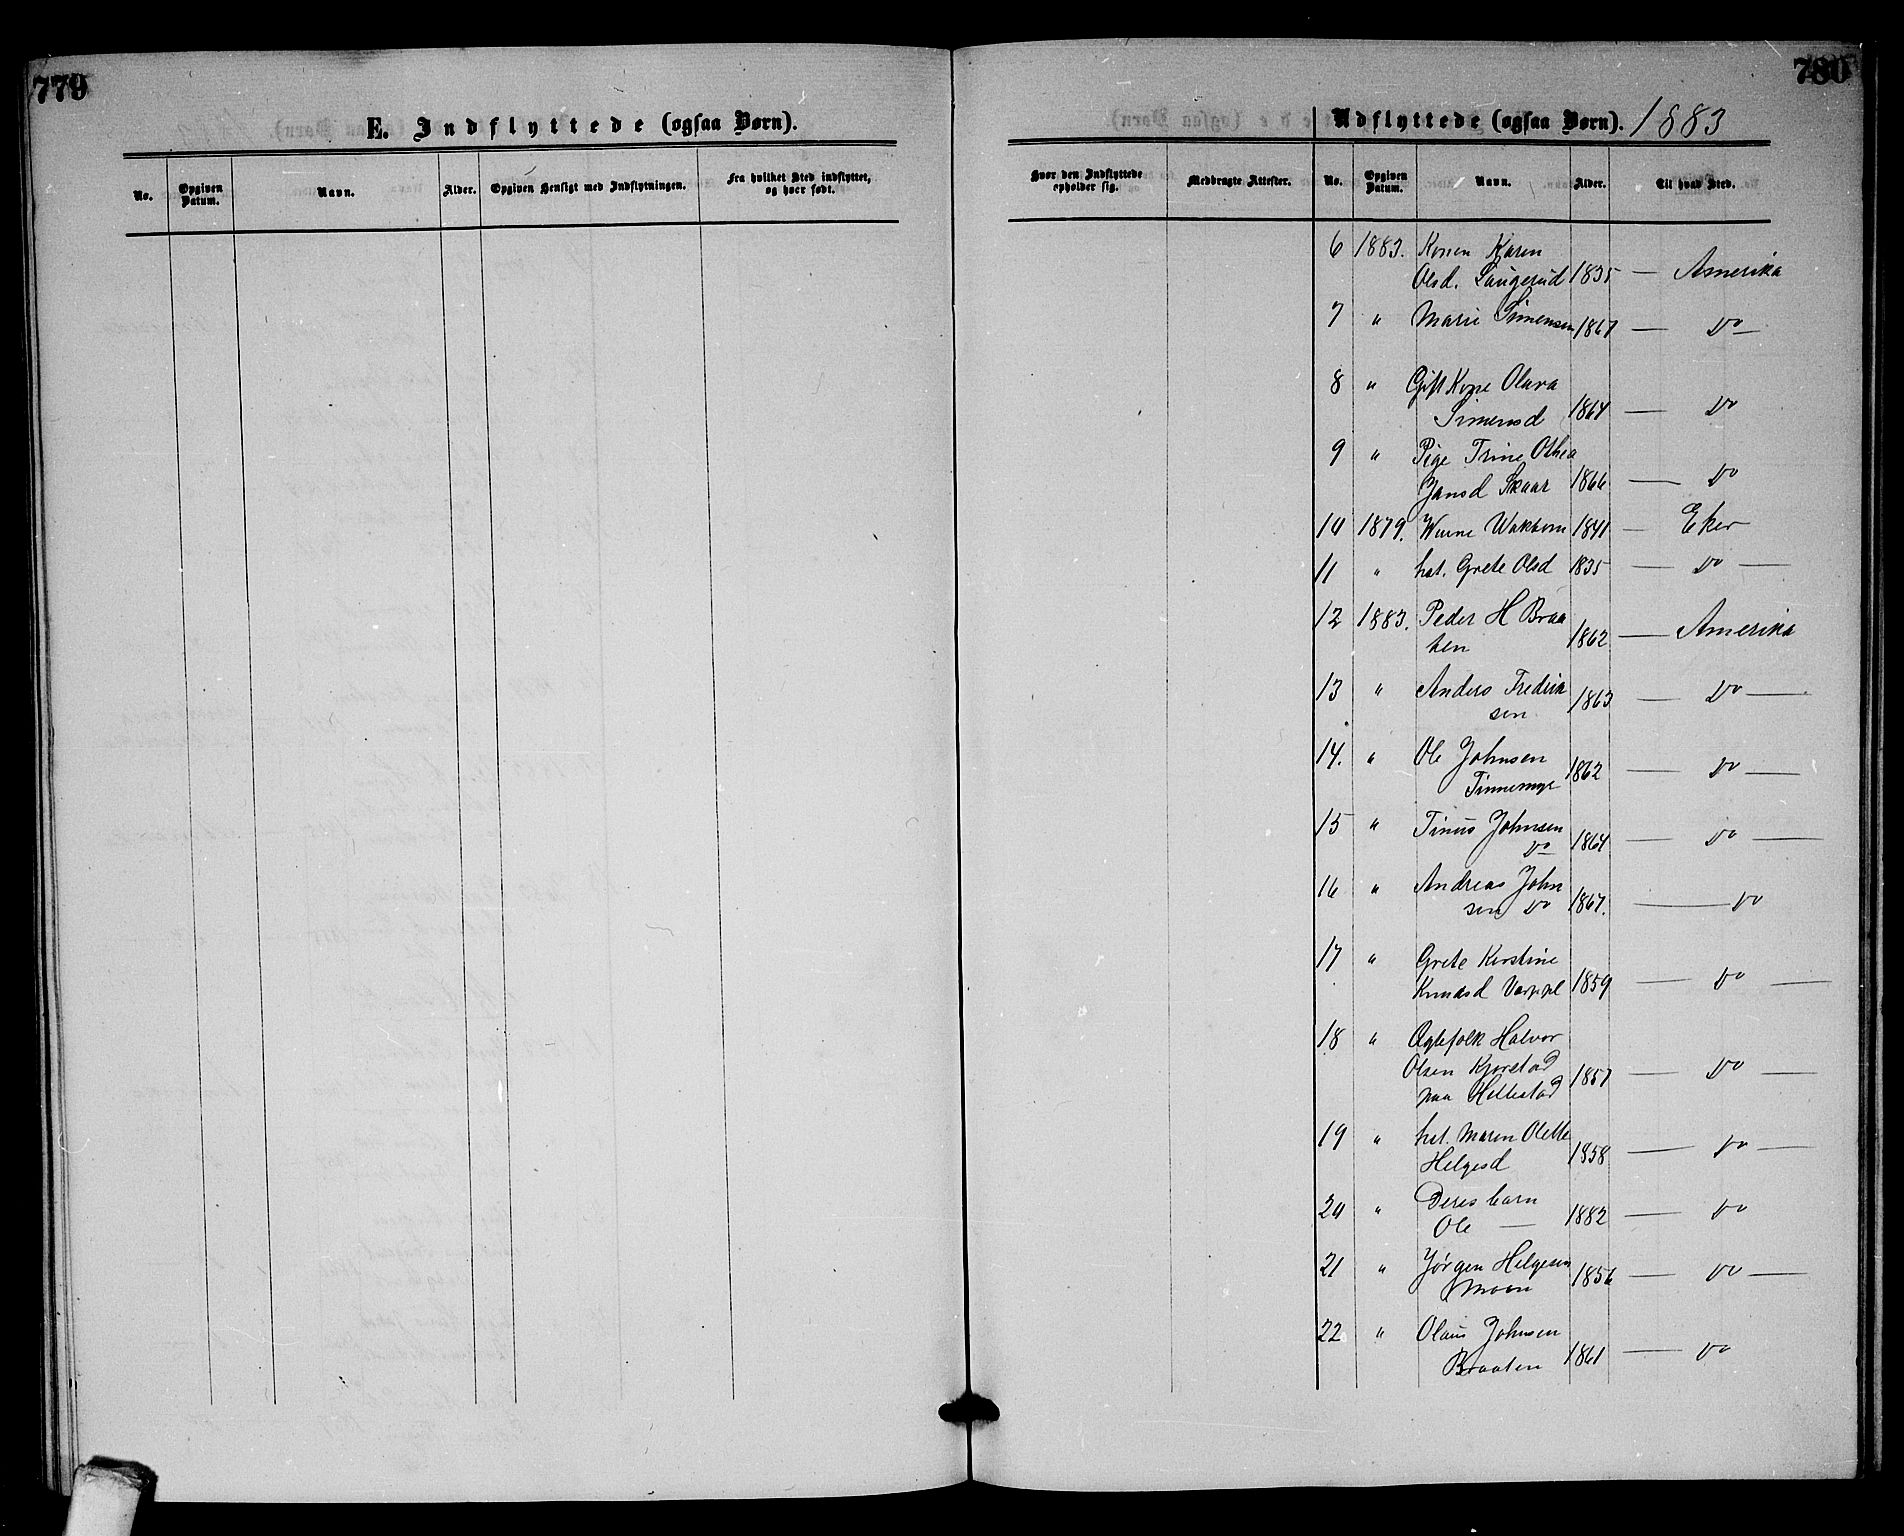 779
E. Indflyttede (ogsaa Børn).
No.
Opgiven Datum.
Navn.
Alder.
Opgiven Hensigt med Indflytningen.
Fra hvilket Sted indflyttet, og hvor født.
780
Udflyttede (ogsaa Børn). 1883
Hvor den Indflyttede opholder sig.
Medbragte Attester.
No.
Opgiven Datum.
Navn.
Alder.
Til hvad Sted.
6 1883. Konen Karen
Olsd. Laugerud 1835 — Amerika
7 " Marie Simensen 1867 — Do —
8 " Gift Kone Olava
Simensd 1864 — Do
9 " Pige Trine Othea
Jansd Skaar 1866 — Do
10 1879. 1841 — Eker
11 " hst. Grete Olsd 1835 — Do —
12 1883. Peder H Braa
ten 1862 — Amerika
13 " Anders Fredrik
sen 1863 — Do —
14. " Ole Johnsen
Tinnemyr 1862 — Do —
15 " Tinius Johnsen
Do 1864 — Do —
16 " Andreas John
sen Do 1867. — Do
17 " Grete Kirstine
Knudsd 1859 — Do —
18 " Ægtefolk Halvor
Olsen Kjørstad
paa Hellestad 1857 — Do —
19 " hst. Maren Olette
Helgesd 1858 — Do —
20 " Deres barn
Ole — 1882 — Do
21 " Jørgen Helgesen
Moen 1856 — Do —
22 " Olaus Johnsen
Braaten 1861 — Do